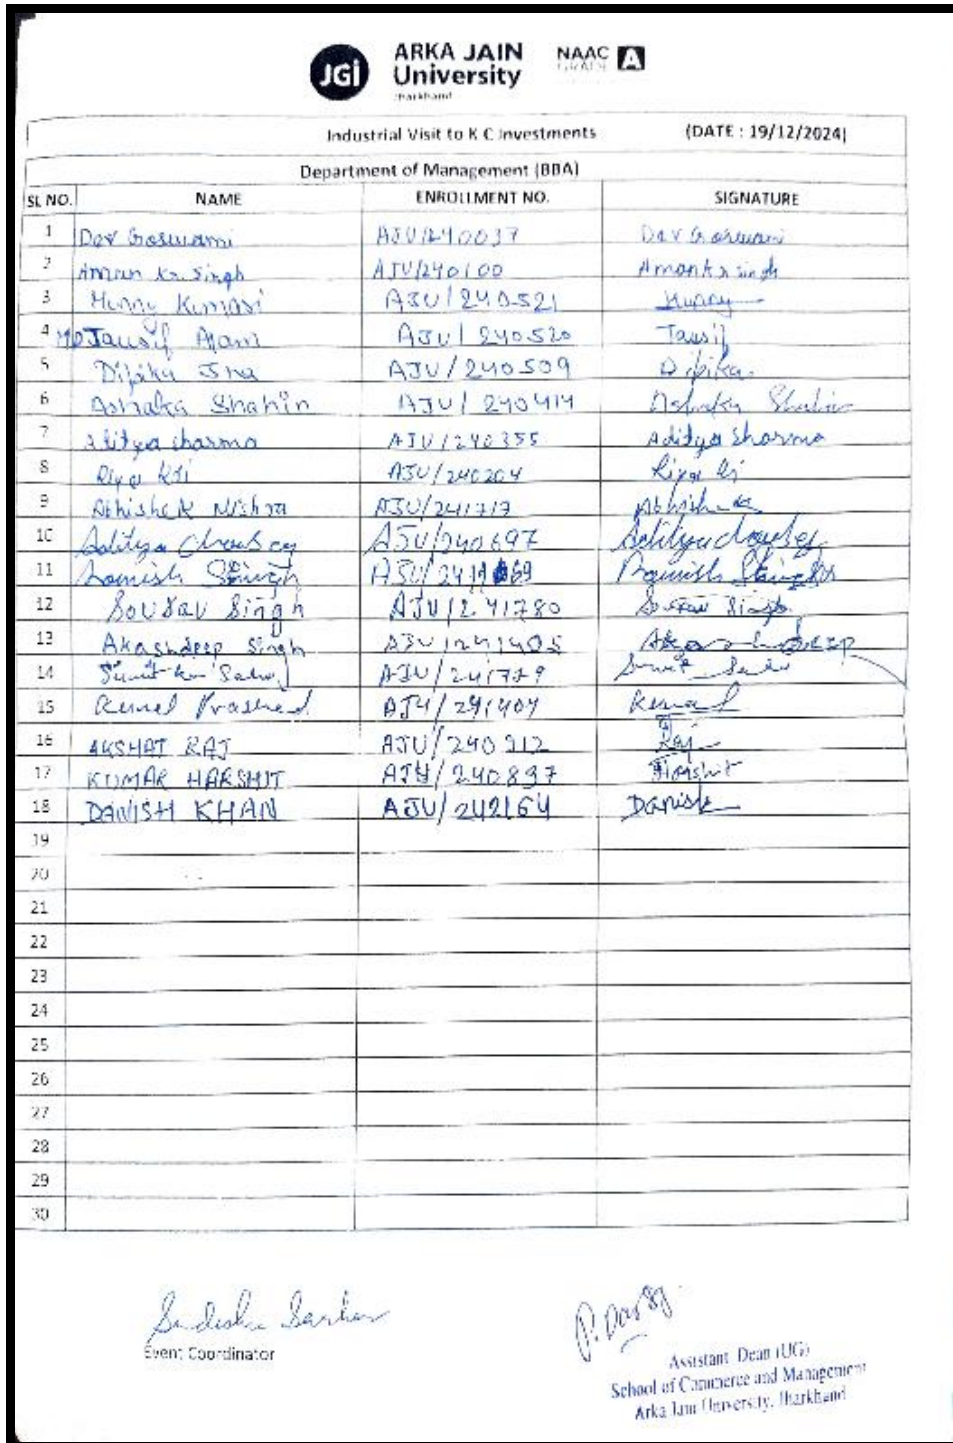 JGi
ARKA JAIN
University
Jharkhand
NAAC
GRADE A
Industrial Visit to K C Investments (DATE : 19/12/2024)
Department of Management (BBA)
SL NO. NAME ENROLLMENT NO. SIGNATURE
1 Dev Goswami AJU/240037 Dev Goswami
2 Aman Kr Singh AJU/240100 Aman Kr Singh
3 Hunny Kumari AJU/240521 Hunny
4 Md Tausif Alam AJU/240520 Tausif
5 Dipika Jha AJU/240509 Dipika
6 Ashaka Shahin AJU/240414 Shahin
7 Aditya sharma AJU/240355 Aditya Sharma
8 Riya AJU/240204 Riya
9 Abhishek Mishra AJU/241717 Abhishek
10 Aditya Choubey AJU/240697 Aditya
11 Singh
12 Sourav Singh AJU/241780 Sourav Singh
13 Akashdeep Singh AJU/241405 Akashdeep
14 Sumit AJU/241779 Sumit
15 Prashad Kunal
16 AKSHAT RAJ AJU/240212 Raj
17 KUMAR HARSHIT AJU/240897 Harshit
18 DANISH KHAN AJU/242164 Danish
19
20
21
22
23
24
25
26
27
28
29
30
Event Coordinator
Assistant Dean (UG)
School of Commerce and Management
Arka Jain University, Jharkhand